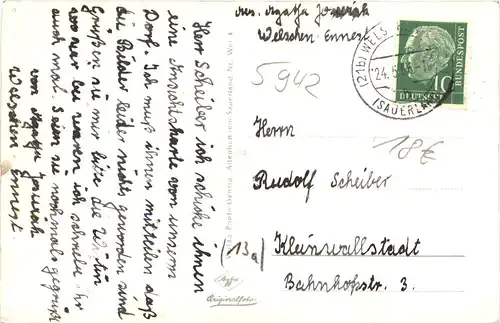 Herr Scheiber ich schicke ihnen
eine Ansichtskarte von unserem
Dorf. Ich muß ihnen mitteilen daß
die Bilder leider nichts geworden sind
Grüßen sie mir bitte die Wirtin
wo wir bei waren ich schreibe ihr
auch mal. Seien sie nochmals gegrüßt
von Agatha
Welschen Ennest.
Abs. Agatha
Welschen-Ennest
5942
(21b) WELS
24.
(SAUERLA
10
DEUTSCHE
BUNDESPOST
18€
Herrn
Rudolf Scheiber
(13a)
Kleinwallstadt
Bahnhofstr. 3.
Photo
Agfa
Originalfoto